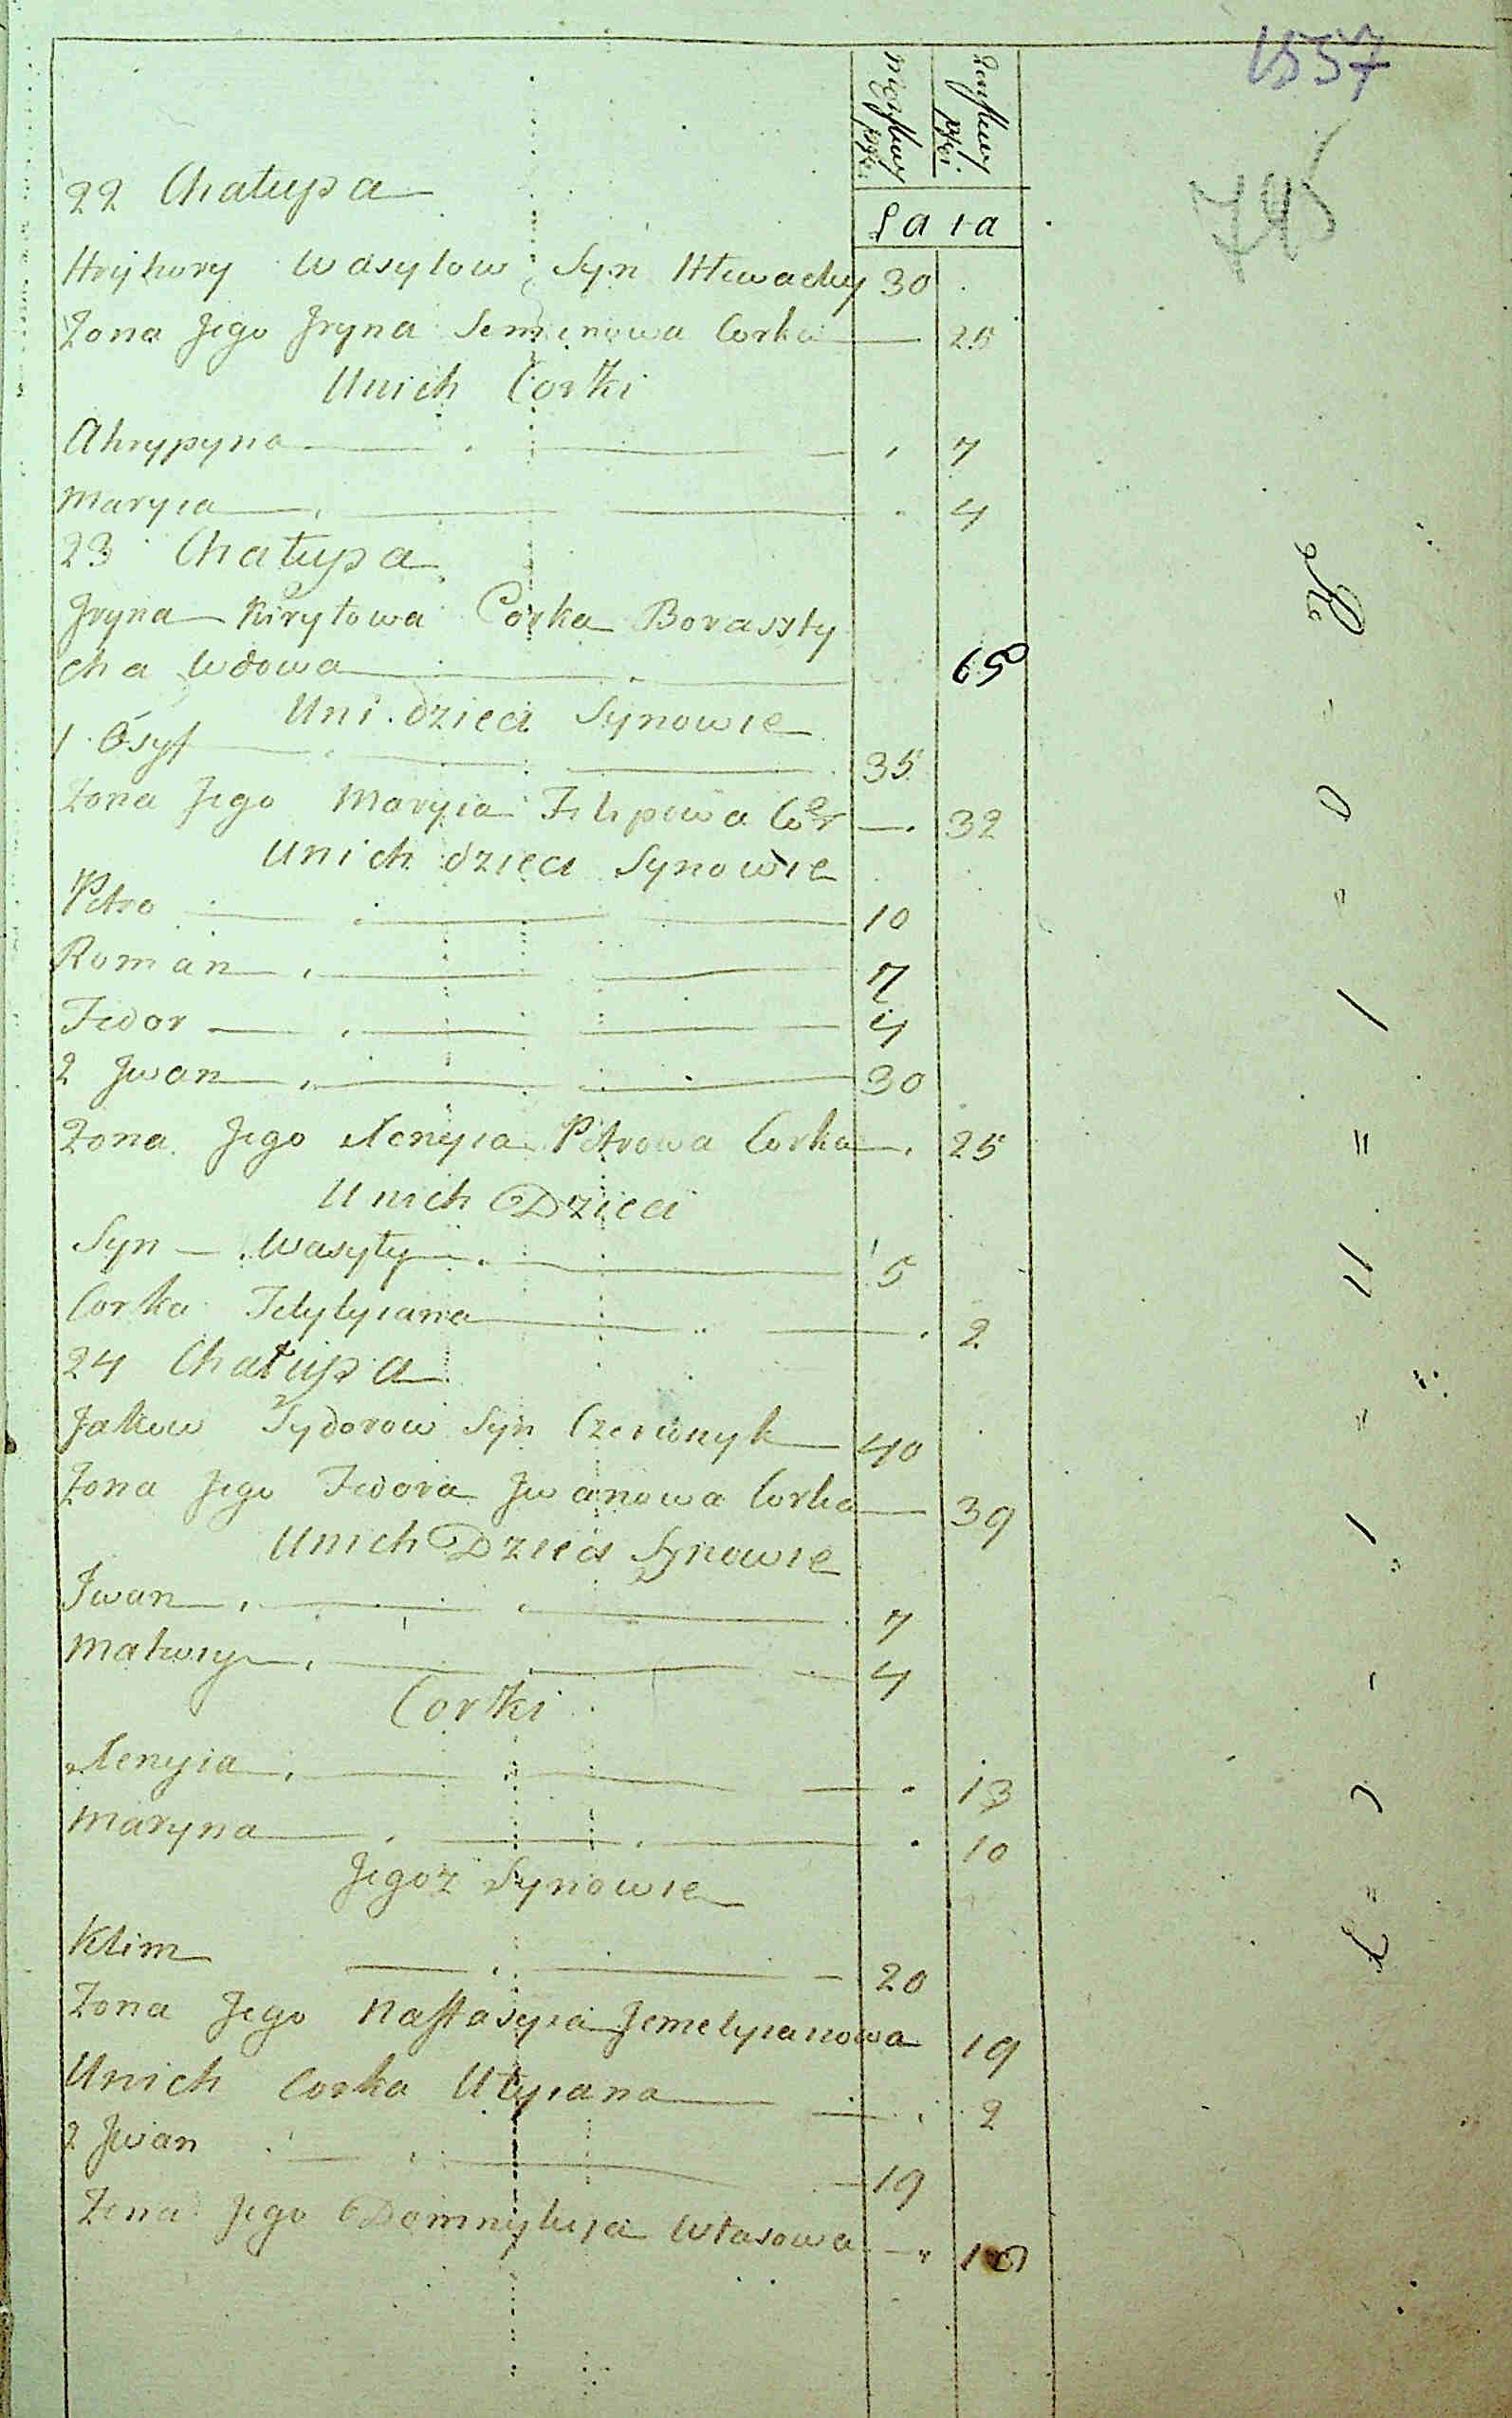 1557
745
Męzskiey płci
Zenskiey płci
Lata
22 Chałupa
Hryhory Wasylow Syn Hlewacky 30
Zona Jego Jryna Semenowa Corka 25
Unich Corki
Ahrypyna 7
Maryia 4
23 Chałupa
Jryna Kirylowa Corka Boraszły
cha Wdowa 65
Uni dzieci Synowie
1 Osyf 35
Zona Jego Maryia Filipowa Cor 32
Unich dzieci Synowie
Petro 10
Roman 7
Fedor 4
2 Jwan 30
Zona Jego Xenyia Petrowa Corka 25
Unich Dzieci
Syn Wasyly 5
Corka Tetylyiana 2
24 Chałupa
Jakow Sydorow Syn Czerwnyk 40
Zona Jego Fedora Jwanowa Corka 39
Unich Dzieci Synowie
Jwan 7
Matwiy 4
Corki
Xenyia 13
Maryna 10
Jegoz Synowie
Klim 20
Zona Jego Nastasyia Jemelyianowa 19
Unich Corka Ulyiana 2
2 Jwan 19
Zona Jego Domnykyia Własowa